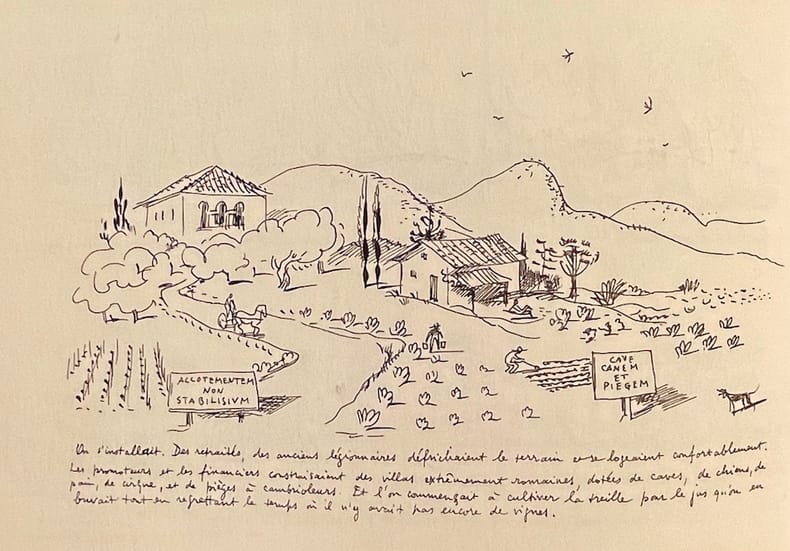 ACCOTEMENTEM
NON
STABILISIUM
CAVE
CANEM
ET
PIEGEM
On s'installait. Des retraités, des anciens légionnaires défrichaient le terrain et se logeaient confortablement.
Les promoteurs et les financiers construisaient des villas extrêmement romaines, dotées de caves, de chiens, de
pain, de cirque, et de pièges à cambrioleurs. Et l'on commençait à cultiver la treille pour le jus qu'on en
buvait tout en regrettant le temps où il n'y avait pas encore de vignes.